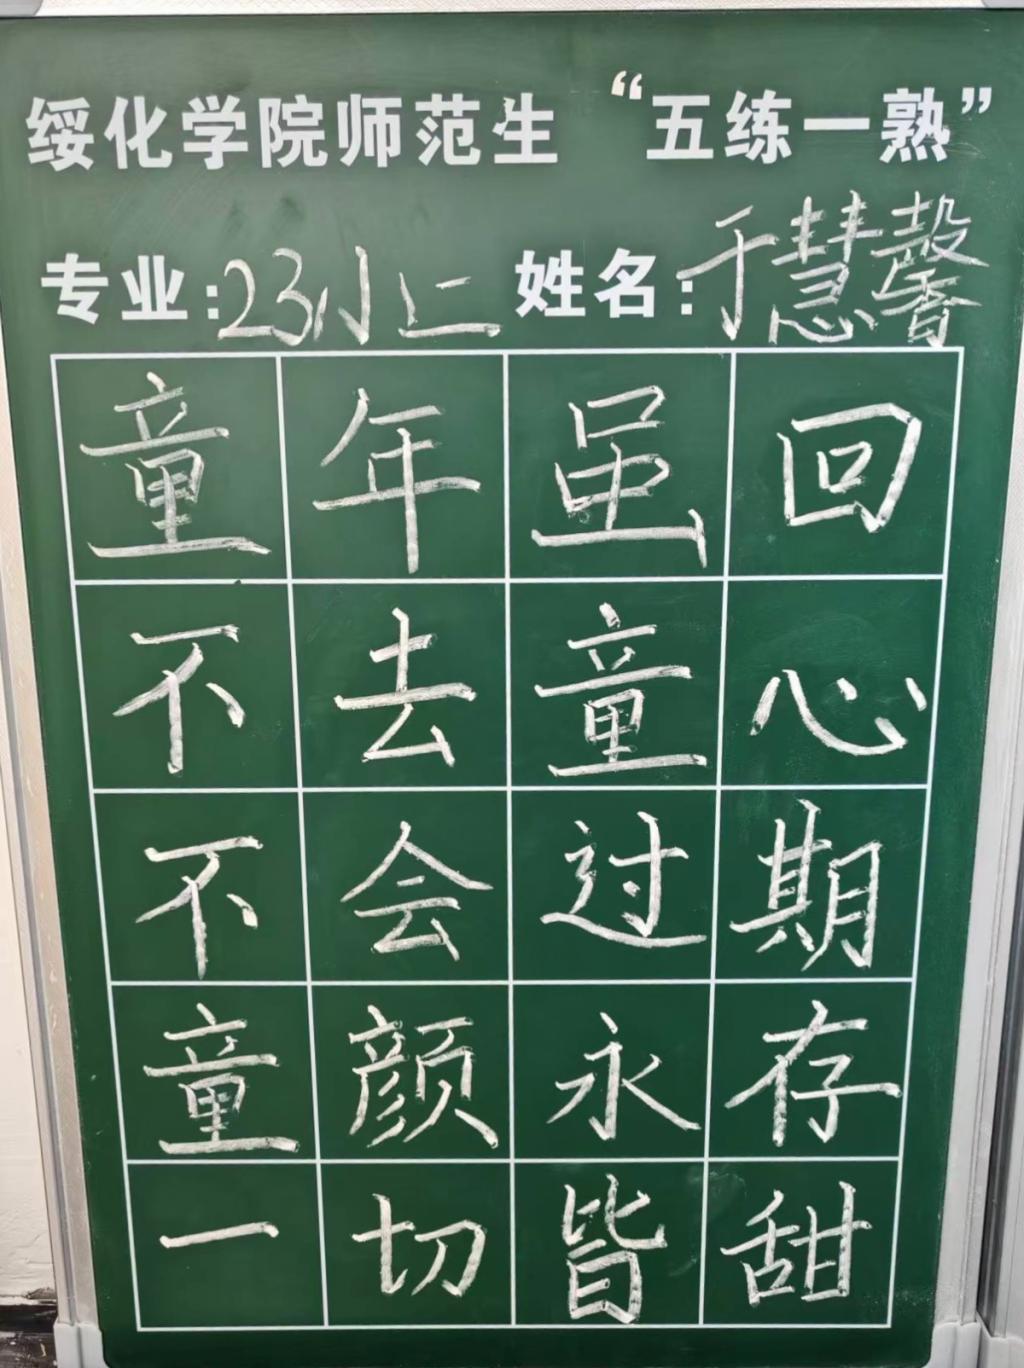 绥化学院师范生“五练一熟”
专业:23小二 姓名:于慧馨
童年虽回
不去童心
不会过期
童颜永存
一切皆甜